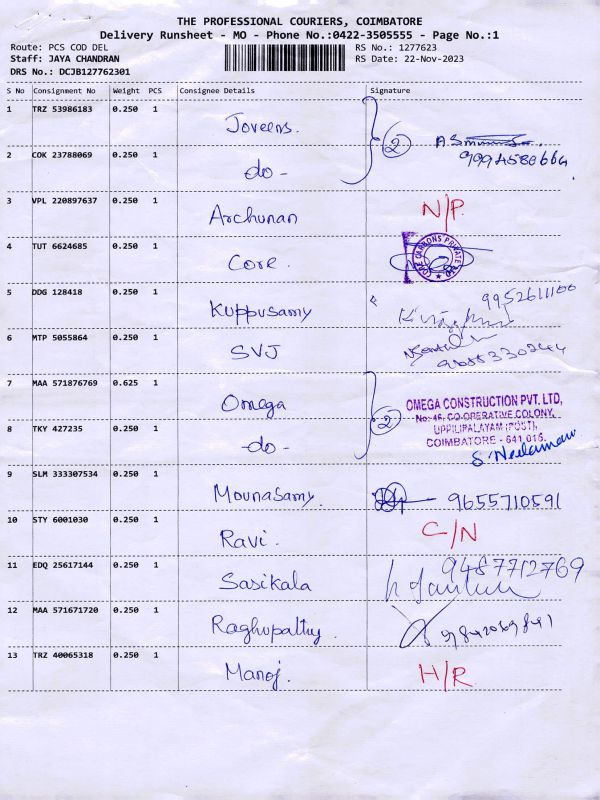 THE PROFESSIONAL COURIERS, COIMBATORE
Delivery Runsheet - MO - Phone No.:0422-3505555 - Page No.:1
Route: PCS COD DEL RS No.: 1277623
Staff: JAYA CHANDRAN RS Date: 22-Nov-2023
DRS No.: DCJB127762301
S No Consignment No Weight PCS Consignee Details Signature
1 TRZ 53986183 0.250 1 Joveens. 2
2 COK 23788069 0.250 1 -do- 9994580664
3 VPL 220897637 0.250 1 Archunan N/P.
4 TUT 6624685 0.250 1 Core.
5 DDG 128418 0.250 1 Kuppusamy 9952611100
6 MTP 5055864 0.250 1 SVJ
7 MAA 571876769 0.625 1 Omega 2 OMEGA CONSTRUCTION PVT. LTD,
No: 46, CO-OPERATIVE COLONY,
UPPILIPALAYAM (POST),
8 TKY 427235 0.250 1 -do- COIMBATORE - 641 015.
9 SLM 333307534 0.250 1 Mounasamy. 9655710591
10 STY 6001030 0.250 1 Ravi. C/N
11 EDQ 25617144 0.250 1 Sasikala 9487712769
12 MAA 571671720 0.250 1 Raghupathy.
13 TRZ 40065318 0.250 1 Manoj. H/R